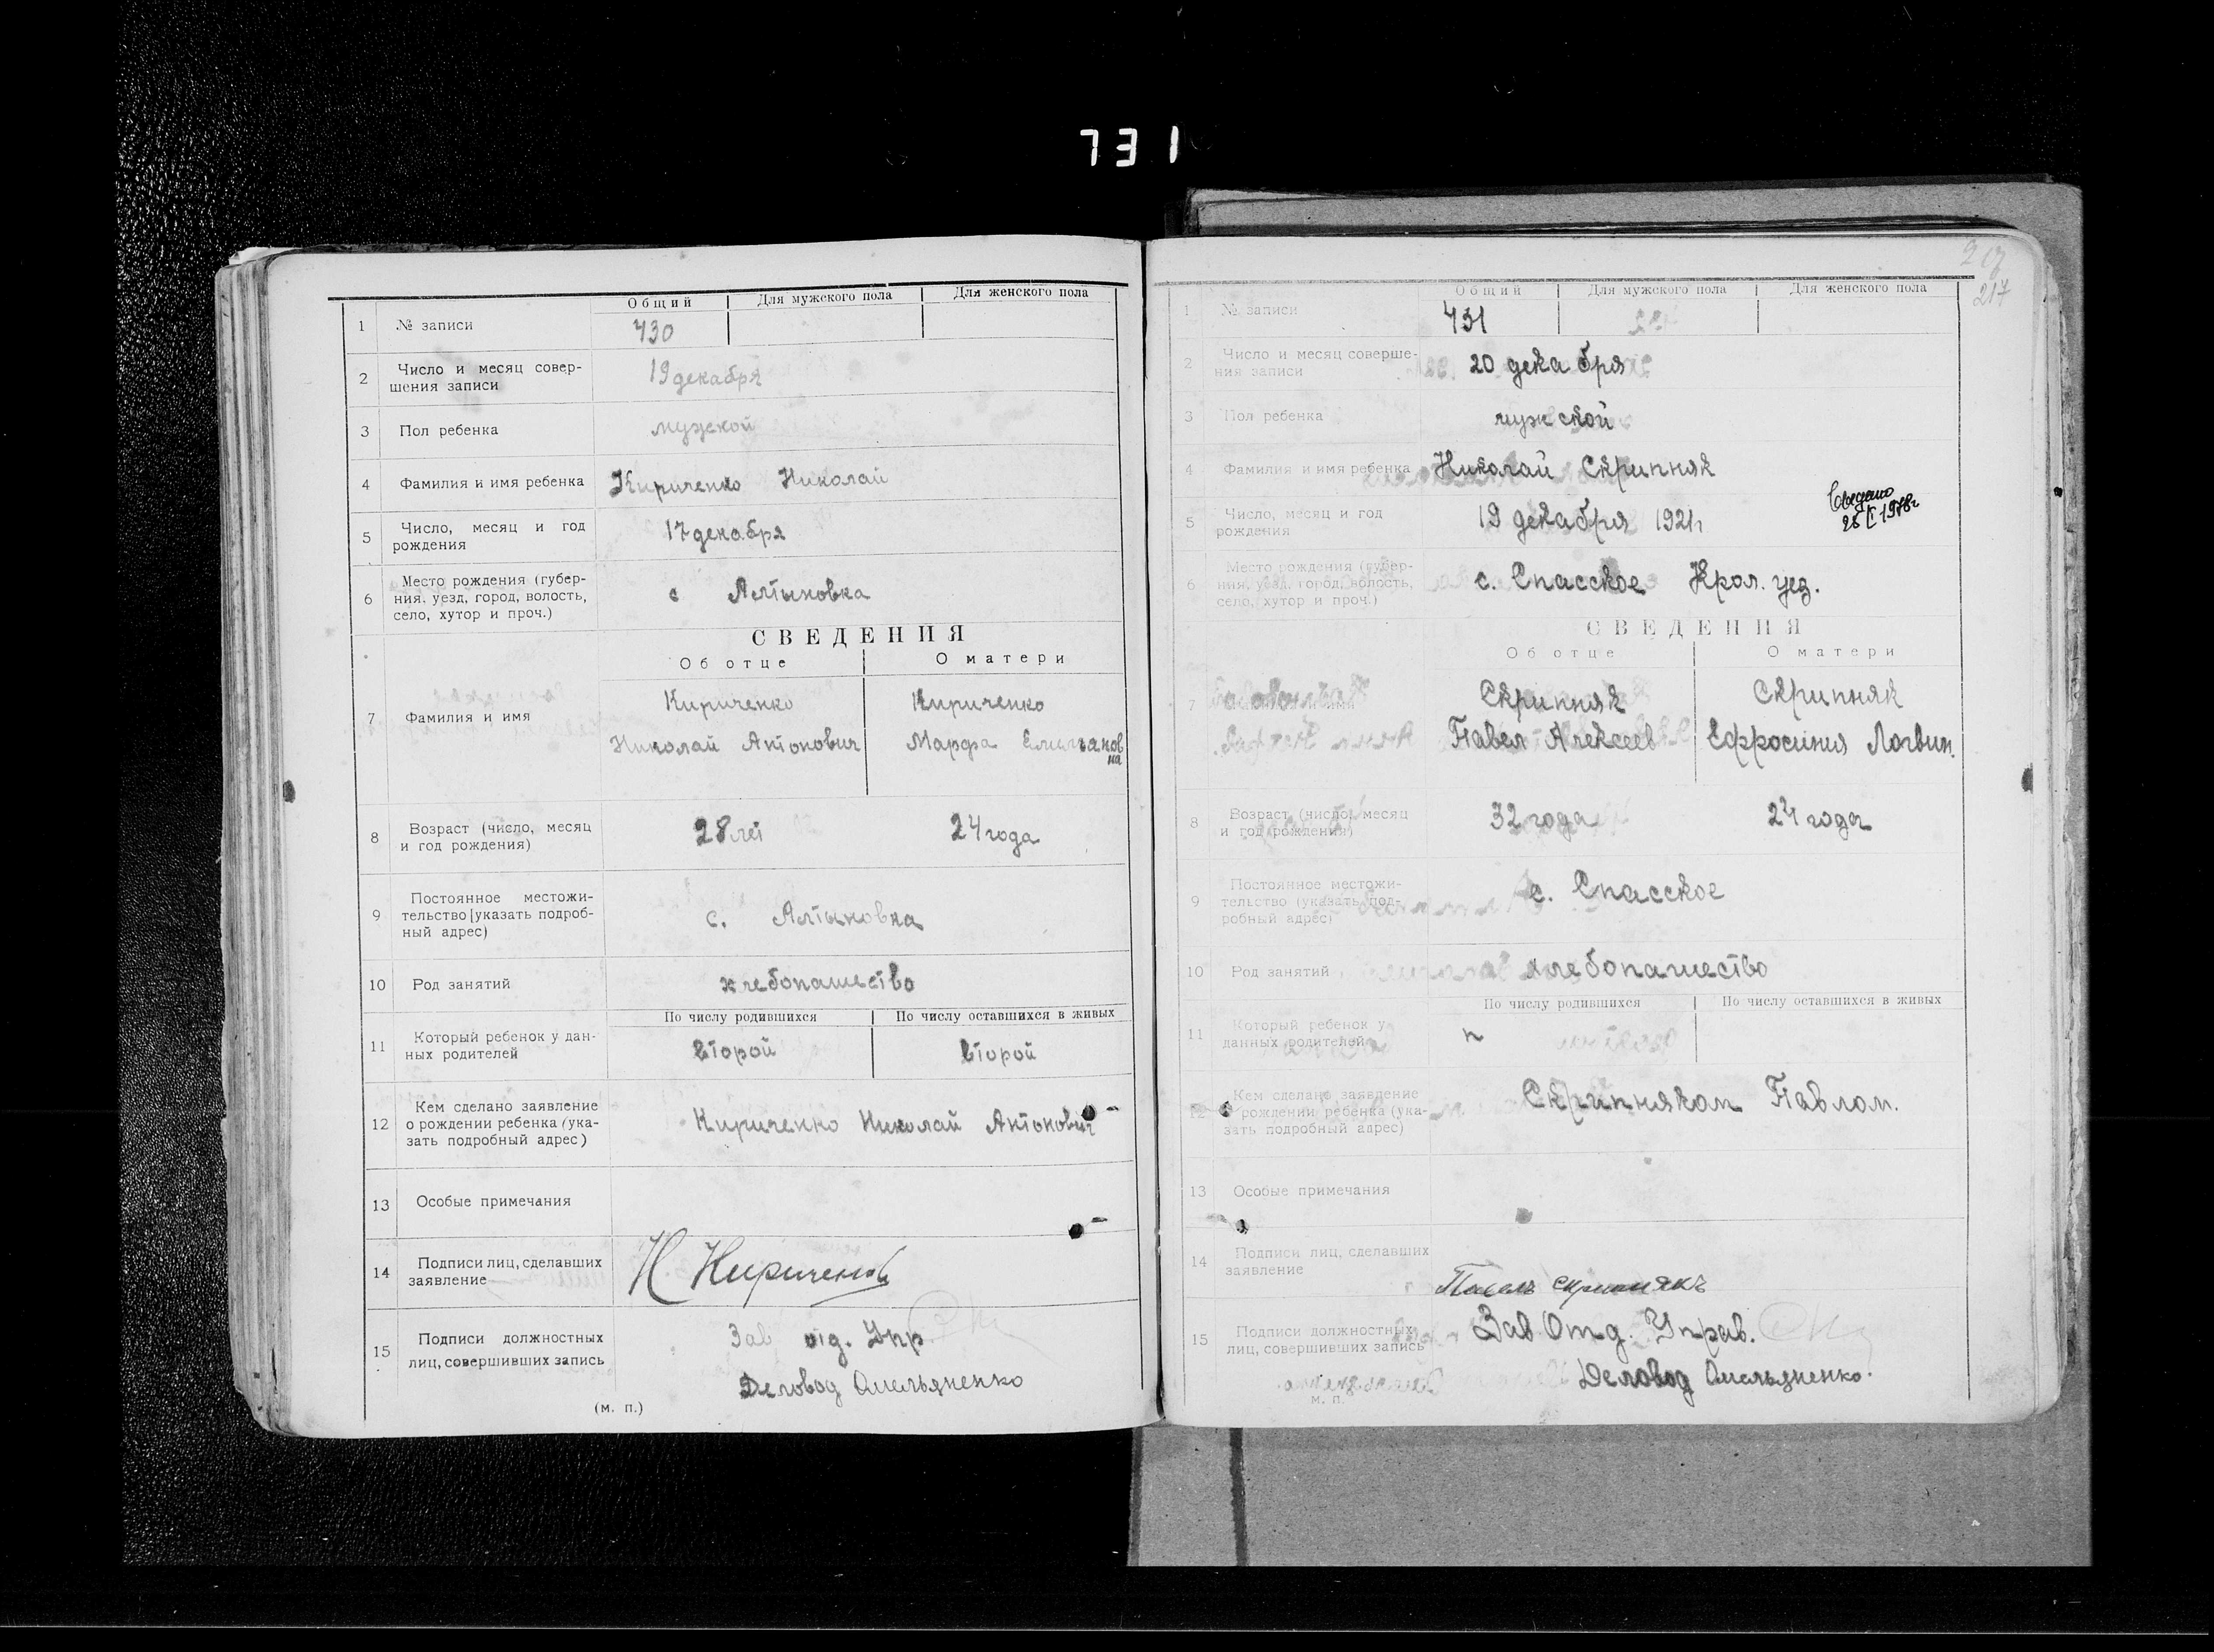 731
Общий Для мужского пола Для женского пола
1 № записи 430
2 Число и месяц совер-
шения записи 19 декабря
3 Пол ребенка мужской
4 Фамилия и имя ребенка Кириченко Николай
5 Число, месяц и год
рождения 17 декабря
6 Место рождения (губер-
ния, уезд, город, волость,
село, хутор и проч.) с Алтыновка
СВЕДЕНИЯ
Об отце О матери
7 Фамилия и имя Кириченко Кириченко
Николай Антонович Марфа Емельянов
на
8 Возраст (число, месяц
и год рождения) 28 лет 24 года
9 Постоянное местожи-
тельство [указать подроб-
ный адрес) с. Алтыновка
10 Род занятий хлебопашество
По числу родившихся По числу оставшихся в живых
11 Который ребенок у дан-
ных родителей второй второй
12 Кем сделано заявление
о рождении ребенка (ука-
зать подробный адрес) Кириченко Николай Антонович
13 Особые примечания
14 Подписи лиц, сделавших
заявление Н Кириченко
15 Подписи должностных
лиц, совершивших запись Зав отд. Упр
Деловод Омельяненко
(м. п.)
217
217
Общий Для мужского пола Для женского пола
1 № записи 431
2 Число и месяц соверше-
ния записи 20 декабря
3 Пол ребенка мужской
4 Фамилия и имя ребенка Николай Скрипняк
5 Число, месяц и год
рождения 19 декабря 1921г
Сведено
28 1978г
6 Место рождения (губер-
ния, уезд, город, волость,
село, хутор и проч.) с. Спасское Крол. уез.
СВЕДЕНИЯ
Об отце О матери
7 Скрипняк Скрипняк
Павел Алексеев Ефросиния Логвин.
8 Возраст (число, месяц
и год рождения) 32 года 24 года
9 Постоянное местожи-
тельство (указать под-
робный адрес) с. Спасское
10 Род занятий хлебопашество
По числу родившихся По числу оставшихся в живых
11 Который ребенок у
данных родителей
12 Кем сделано заявление
о рождении ребенка (ука-
зать подробный адрес) Скрипняком Павлом.
13 Особые примечания
14 Подписи лиц, сделавших
заявление Павелъ Скрипнякъ
15 Подписи должностных
лиц, совершивших запись Зав Отд. Управ.
Деловод Омельяненко.
м. п.